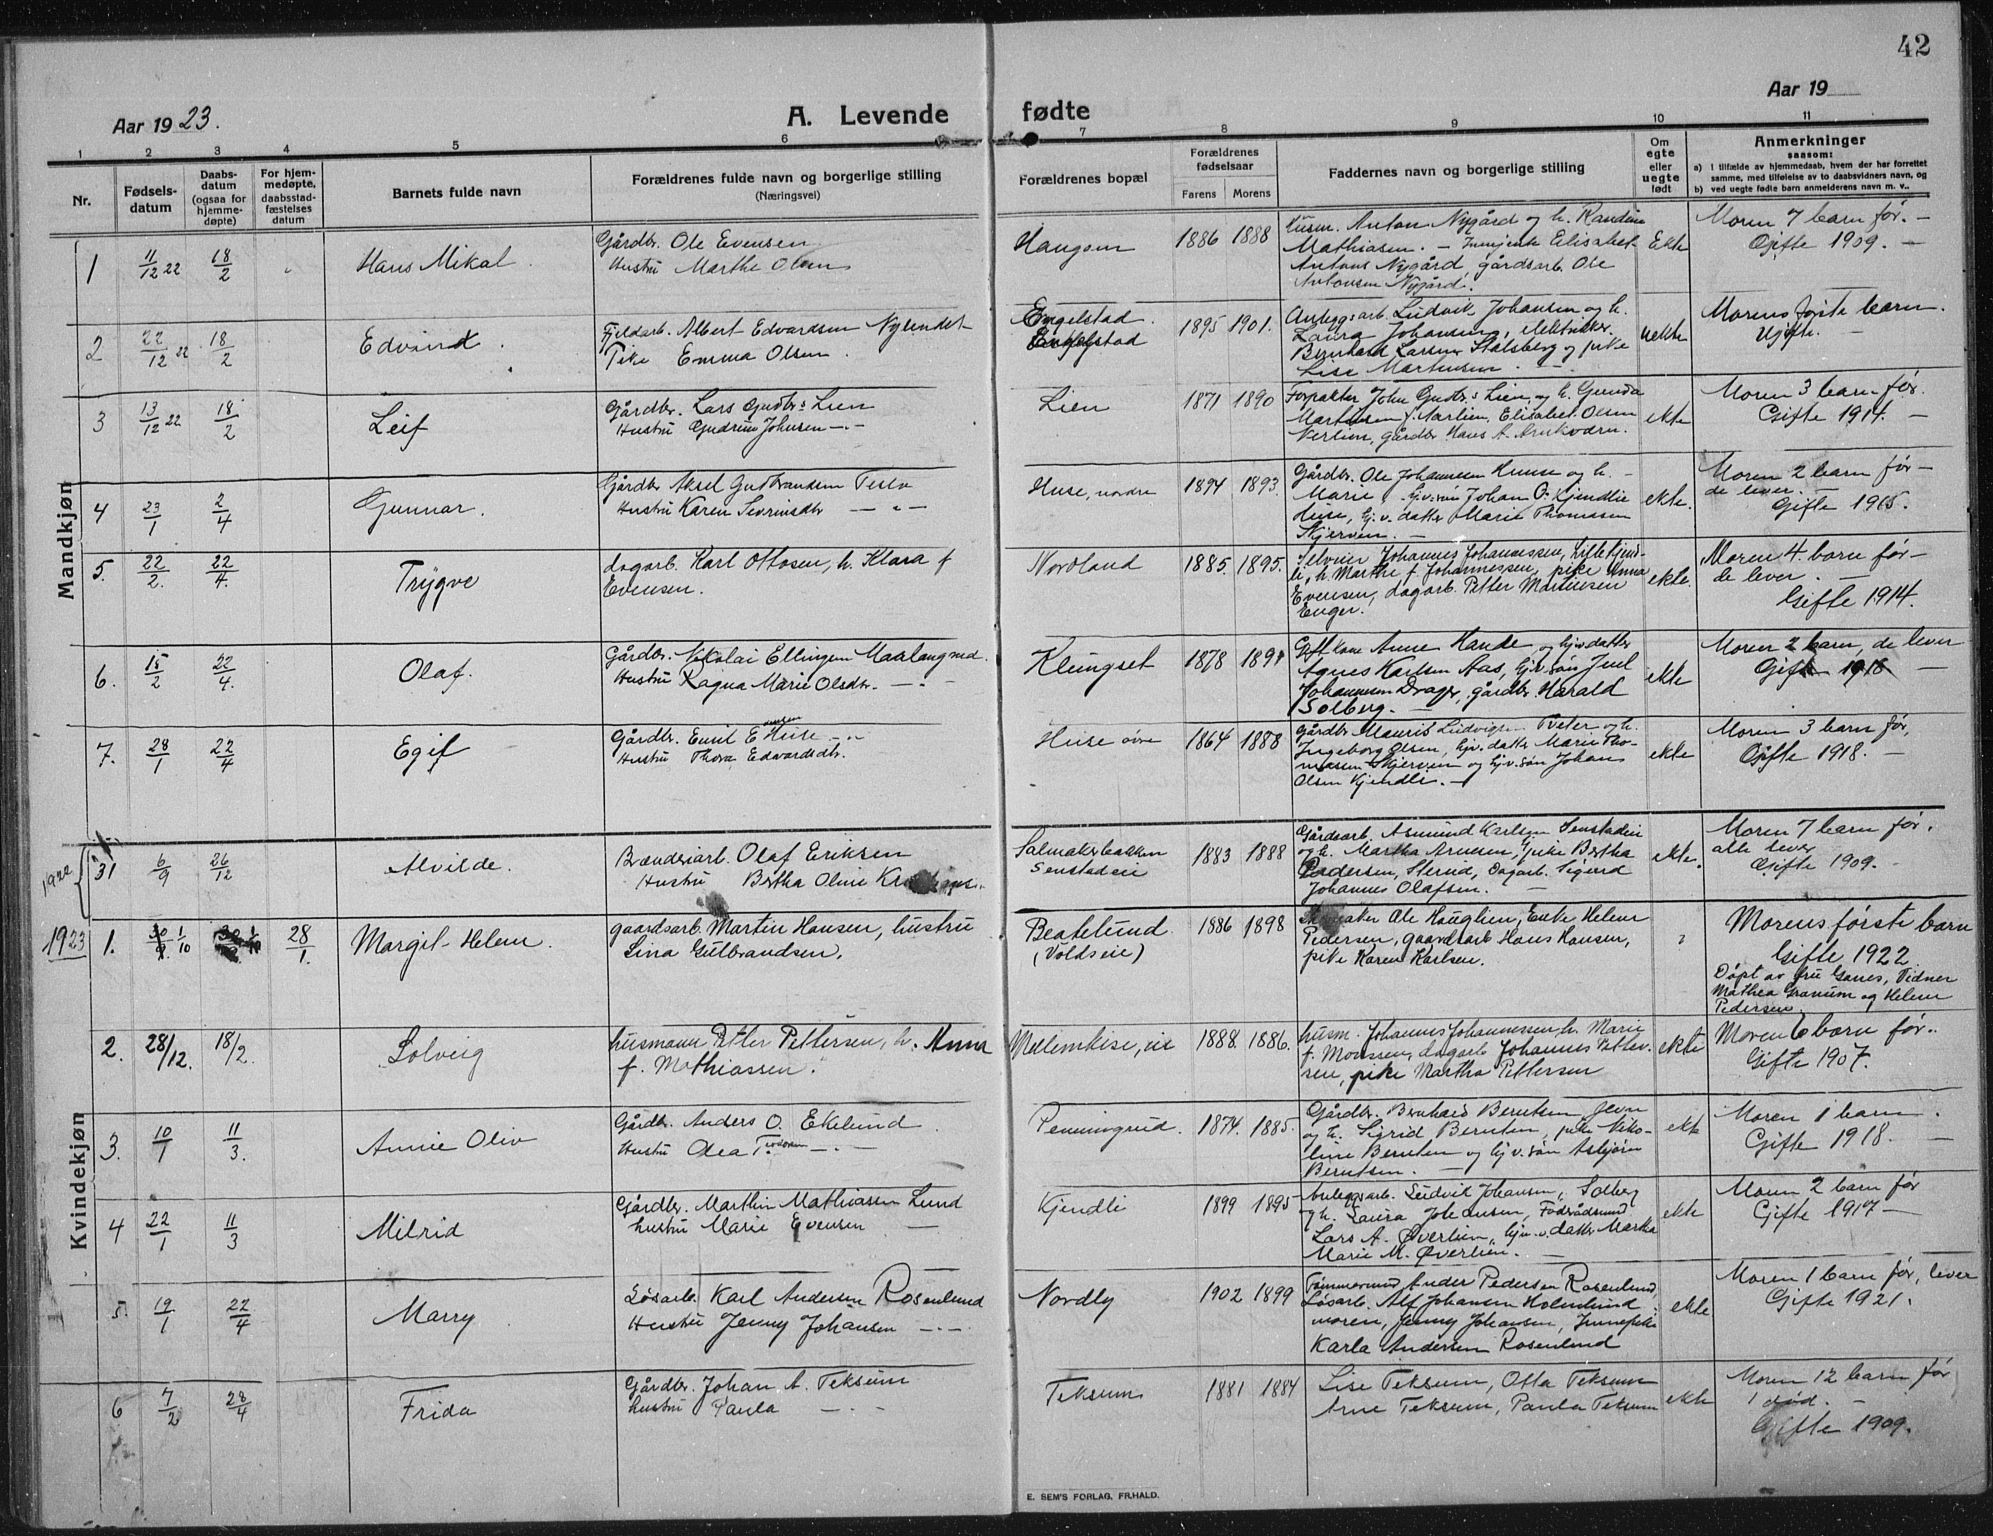 42
Aar 1923.
A. Levende fødte
Aar 19
1 2 3 4 5 6 7 8 9 10 11
Nr.
Fødsels-
datum
Daabs-
datum
(ogsaa for
hjemme-
døpte)
For hjem-
medøpte,
daabsstad-
fæstelses
datum
Barnets fulde navn
Forældrenes fulde navn og borgerlige stilling
(Næringsvei)
Forældrenes bopæl
Forældrenes
fødselsaar
Farens Morens
Faddernes navn og borgerlige stilling
Om
egte
eller
uegte
født
Anmerkninger
saasom:
a) i tilfælde av hjemmedaab, hvem der har forrettet
samme, med tilføielse av to daabsvidners navn, og
b) ved uegte fødte barn anmelderens navn m. v..
Mandkjøn
1 11/12 22 18/2 Hans Mikal
Gårdbr. Ole Evensen
Hustru Marthe Olsen
Haugom 1886 1888
Husm. Anton Nygård og h. Randine
Mathiasen. – Innejente Elisabet
Antons Nygård, gårdsarb. Ole
Antonsen Nygård.
Ekte
Moren 7 barn før. –
Gifte 1909. –
2 22/12 22 18/2 Edvind.
Fjeldarb. Albert Edvardsen Nylendet
Pike Emma Olsen.
Engelstad.
Engelstad
1895 1901.
Anleggsarb. Ludvik Johansen og h.
Laura Johansen, elektriker
Bernhard Larsen Stalsberg og pike
Lise Martinsen.
uekte
Morens første barn.
Ugifte. –
3 13/12 22 18/2 Leif
Gårdbr. Lars Gudbr.s Lien
Hustru Gudrun Johnsen –"–
Lien 1871 1890
Forpakter John Gudbr.s Lien, og h. Gunda
Martinsen f. Aarlien, Elisabet Olsen
Verlien, gårdbr Hans A. Brukvarn.
ekte
Moren 3 barn før.
Gifte 1914. –
4 23/1 2/4 Gunnar.
Gårdbr Aksel Gudbrandsen Teslo
Hustru Karen Sevrinsdtr – " –
Huse, nordre 1894 1893.
Gårdbr. Ole Johannesen Hunse og h.
Marie, hj.v. søn Johan O. Kjendlie
Huse, hj. v. datter Marie Thomasen
Skjerven. –
ekte.
Moren 2 barn før –
de lever. –
Gifte 1915.
5. 22/2. 22/4. Trygve
dagarb. Karl Ottosen, h. Klara f
Evensen.
Nordland 1885. 1895.
Selveier Johannes Johannessen, Lillekjend-
li, h. Marthe f. Johannessen, pike Anna
Evensen, dagarb. Petter Martinsen
Enger.
ekte.
Moren 4. barn før –
de lever. –
Gifte 1914.
6. 15/2 22/4. Olaf.
Gårdbr. Nikolai Ellingsen Maalangsrud.
Hustru Ragna Marie Olsdtr. – " –
Klungset 1878 1891
Gift kone Anne Hande og hjv datter
Agnes Karlsen Aas, hj.v. søn Juul
Johannesen Drager, gårdbr. Harald
Solberg. –
ekte
Moren 2 barn, de lever
Gifte 1918 –
7. 28/1 22/4 Egil
Gårdbr. Emil Evensen Huse – " –
Hustru Thora Edvardsdtr.
Huse øvre 1864 1888
Gårdbr Mauris Ludvigsen Tveter og h.
Ingeborg Olsen, hjv. datter Marie Tho-
massen Skjerven og hj.v. søn Johan
Olsen Kjendli. –
ekte
Moren 3 barn før,
Gifte 1918. –
Kvindekjøn
1922 31 6/9 26/12 Alvilde.
Brænderiarb. Olaf Eriksen
Hustru Bertha Oline
Salmakerbakken
Senstadeie
1883 1888
Gårdsarb. Asmund Karlsen Senstadeie
og h. Martha Arnesen, pike Bertha
Pedersen, Sterud, Dagarb. Sigurd
Johannes Olafsen. –
ekte.
Moren 7 barn før.
alle lever
Gifte 1909. –
1923 1. 1/10 28/1. Margit Helene.
gaardsarb. Martin Hansen, hustru
Lina Gulbrandsen,
Beatelund
(Voldseie)
1886 1898
Ole Hauglien, Enke Helene
Pedersen, gaardsarb Hans Hansen,
pike Karen Karlsen.
Morens første barn
Gifte 1922
Døpt av fru Ganes, Vidner
Mathea Granum og Helene
Pedersen
2. 28/12. 18/2. Solveig
husmann Petter Pettersen, h. Anna
f. Mathiassen.
Mellemkise, eie 1888. 1886.
husm. Johannes Johannessen, h. Marie
f. Monssen, dagarb Johannes Petter-
sen, pike Martha Pettersen
ekte
Moren 6 barn før..
Gifte 1907.
3. 10/1 11/3. Annie Oliv
Gårdbr. Anders O. Ekelund
Hustru Olea – " –
Penningrud. 1874. 1885.
Gårdbr. Bernhard Berntsen, Jevn
og h. Sigrid Berntsen, pike Niko-
line Berntsen og hj v. søn Asbjørn
Berntsen. –
ekte
Moren 1 barn.
Gifte 1918. –
4 22/1 11/3 Milrid
Gårdbr. Marthin Mathiassen Lund
hustru Marie Evensen –
Kjendli 1899 1895
Anleggsarb. Ludvik Johansen, Solberg
og h. Laura Johansen, Fodrådsund
Lars A. Øverlien, hjv. datter Martha
Marie M. Øverlien. –
ekte
Moren 2 barn før
Gifte 1917 –
5. 19/1 22/4 Marry
Løsarb. Karl Andersen Rosenlund
Hustru Jenny Johansen – " –
Nordly 1902 1899
Tømmermand Ander Pedersen Rosenlund,
Løsarb. Alf Johansen Holmlund.
moren, Jenny Johansen, Innepike
Karla Andersen Rosenlund
ekte
Moren 1 barn før, lever
Gifte 1921.
6 7/2 28/4 Frida
Gårdbr. Johan A. Teksum
hustru Paula – " –
Teksum 1881 1884
Lise Teksum, Otta Teksum
Arne Teksum, Paula Teksum
ekte
Moren 12 barn før
1 død. –
Gifte 1909.
E. SEM'S FORLAG, FR.HALD.